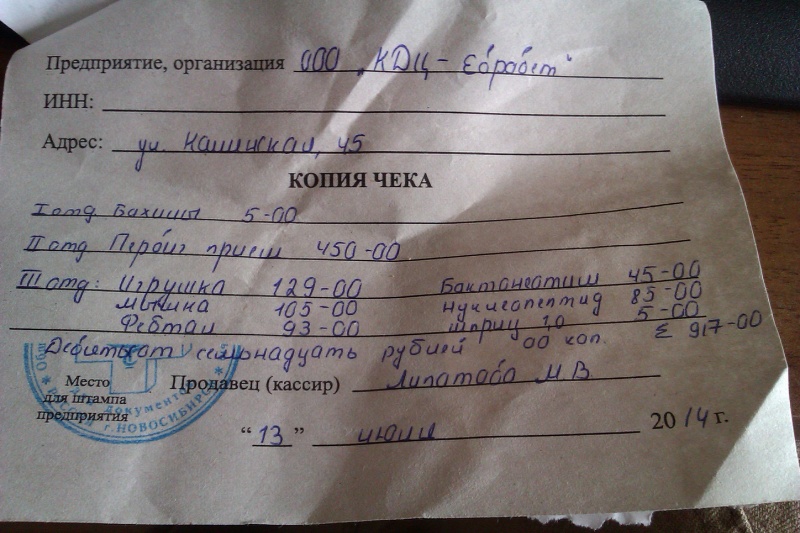 Предприятие, организация ООО "КДЦ - Евровет"
ИНН:
Адрес: ул. Калинская, 45
КОПИЯ ЧЕКА
I отд. Бахилы 5-00
II отд Первый прием 450-00
III отд: Игрушка 129-00 45-00
мышка 105-00 85-00
Фебтал 93-00 шприц 10 5-00
Девятьсот семьнадцать рублей 00 коп. Σ 917-00
Место
для штампа
предприятия
Продавец (кассир) Липатова М.В.
документов
РОССИЯ г.НОВОСИБИРСК
"13" июня 2014 г.